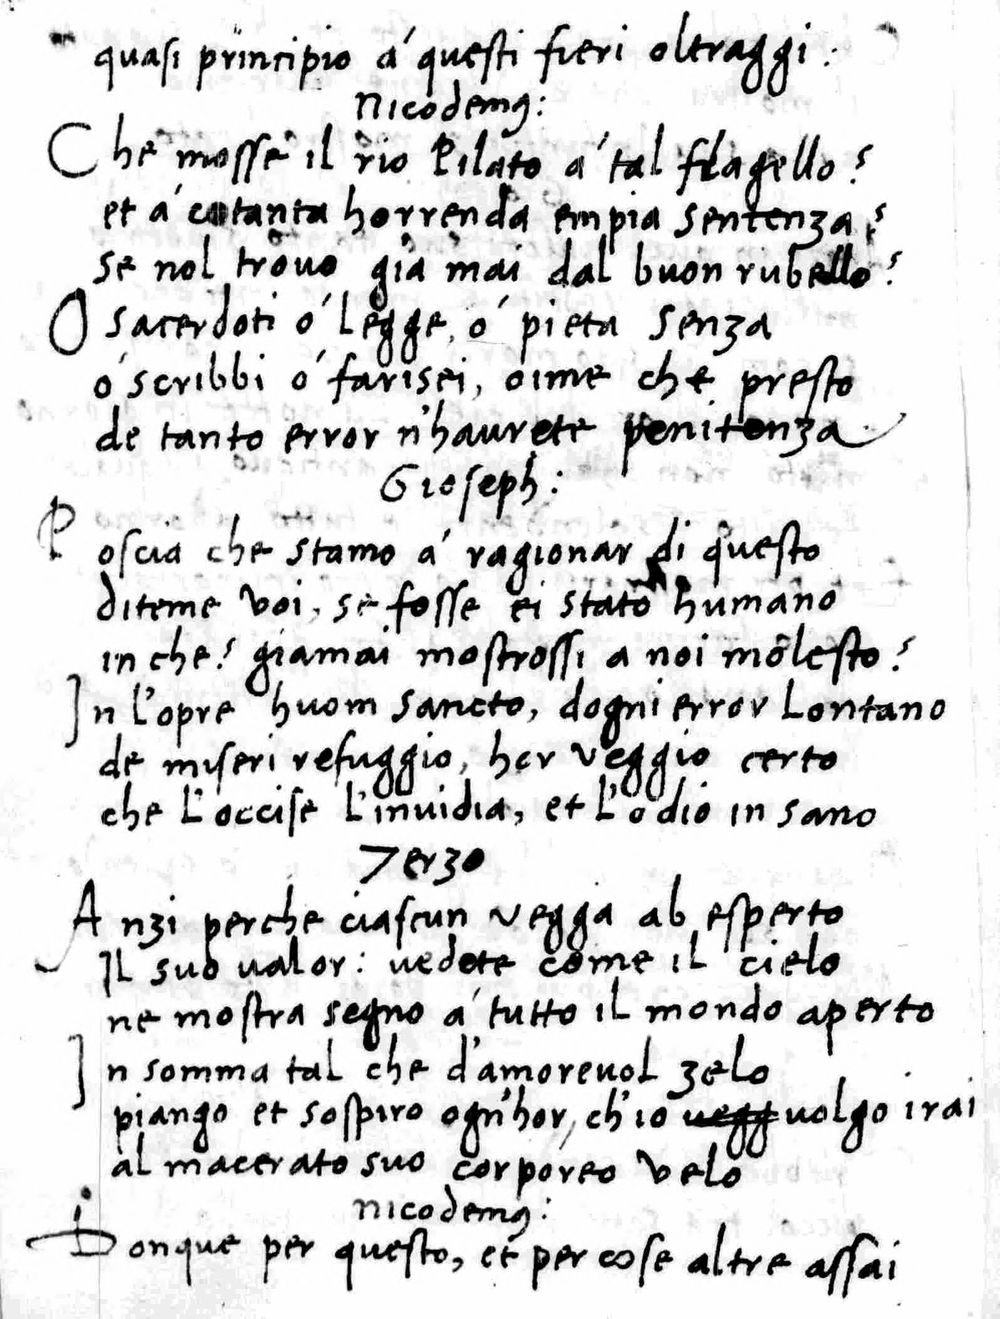 quasi principio á questi fieri oltraggi.
Nicodemꝯ:
Che mosse il rio Pilato á tal flagello?
et á cotanta horrenda empia sentenza?
se nol trovo già mai dal buon rubello?
O sacerdoti ó legge, ó pieta senza
ó scribbi ó farisei, oime che presto
de tanto error n'haurete penitenza
Gioseph:
Poscia che stamo á ragionar di questo
diteme voi, se fosse ei stato humano
in che? giamai mostrossi a noi molesto?
In l'opre huom sancto, dogni error lontano
de miseri refuggio, hor veggio certo
che l'occise l'invidia, et l'odio in sano
Terzo
Anzi perche ciascun vegga ab esperto
Il suo valor: vedete come il cielo
ne mostra segno á tutto il mondo aperto
In somma tal che d'amorevol zelo
piango et sospiro ogn'hor, ch'io vegg volgo i rai
al macerato suo corporeo velo
Nicodemꝯ:
Donque per questo, et per cose altre assai